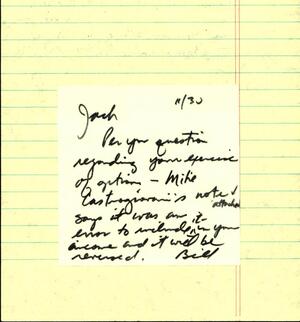 11/30
Jack
Per your question
regarding your exercise
of option – Mike
's note attached
says it was an
error to include it in your
income and it will be
reversed. Bill